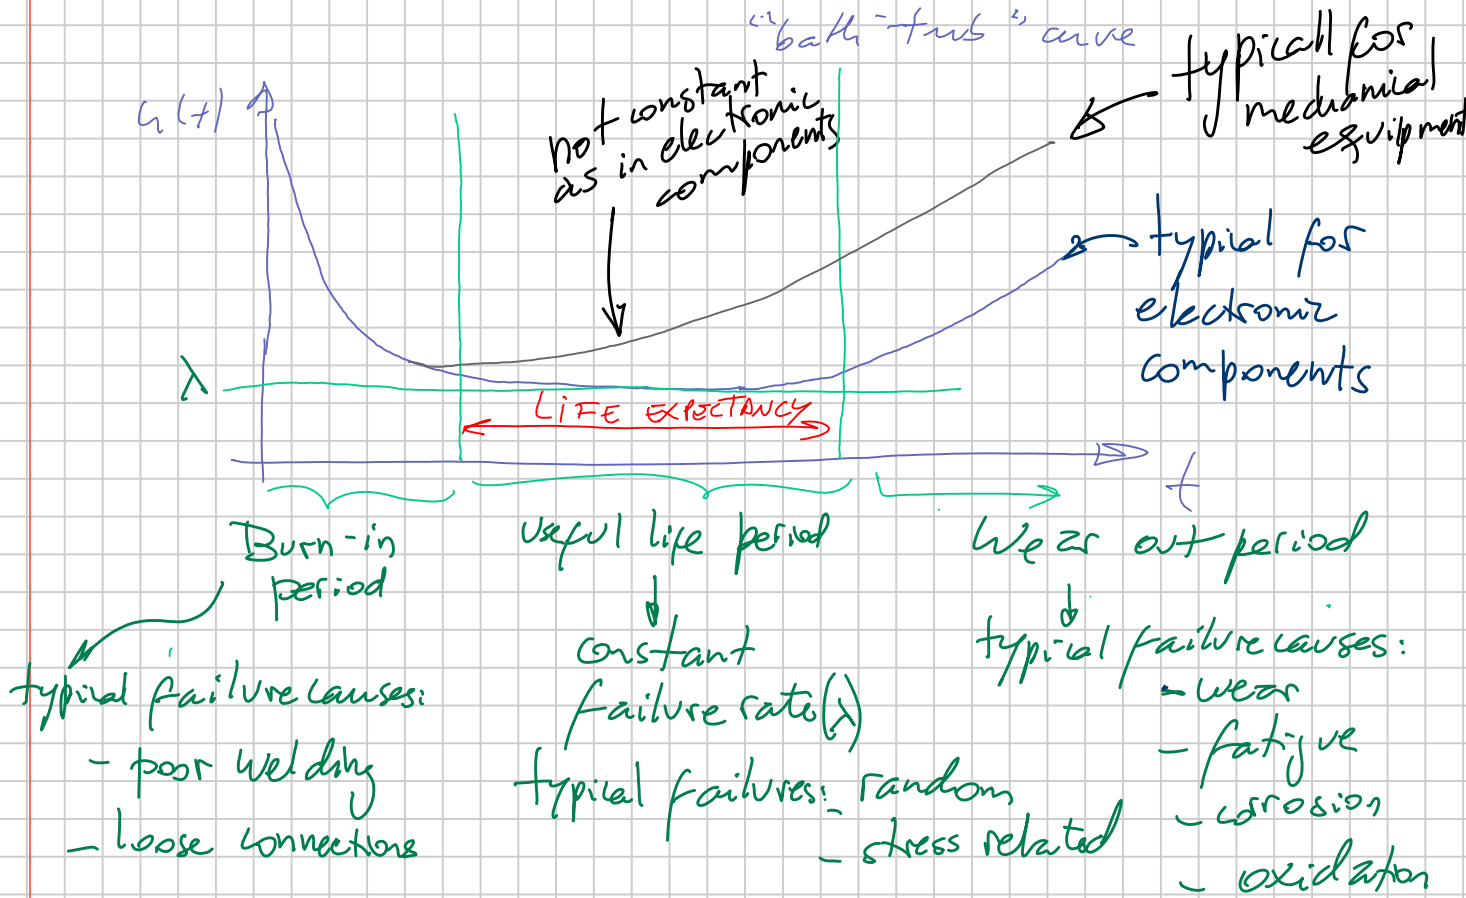 "bath-tub" curve
typicall for
mechanical
equipment
h(t)
not constant
as in electronic
components
typical for
electronic
components
λ
LIFE EXPECTANCY
t
Burn-in
period
useful life period
Wear out period
typical failure causes:
- poor welding
- loose connections
constant
failure rate (λ)
typical failures: - random
- stress related
typical failure causes:
- wear
- fatigue
- corrosion
- oxidation